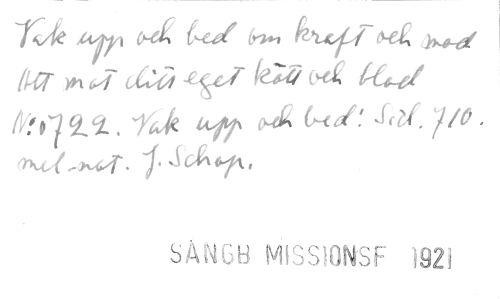 Vak upp och bed om kraft och mod
Att mot ditt eget kött och blod
No: 722. Vak upp och bed! Sid. 710.
mel-not. J. Schop.
SÅNGB MISSIONSF 1921